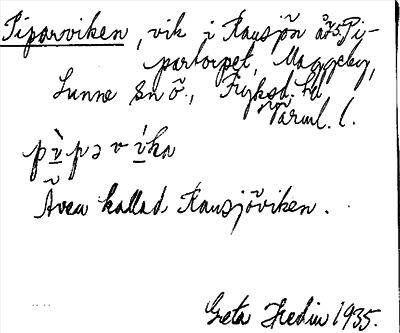 Piparviken, vik i Kausjön åt Pi-
partorpet, Maggeby,
Sunne sn ö., Fryksd. hd
Värml. l.
Även kallad Kausjöviken.
Greta Hedin 1935.